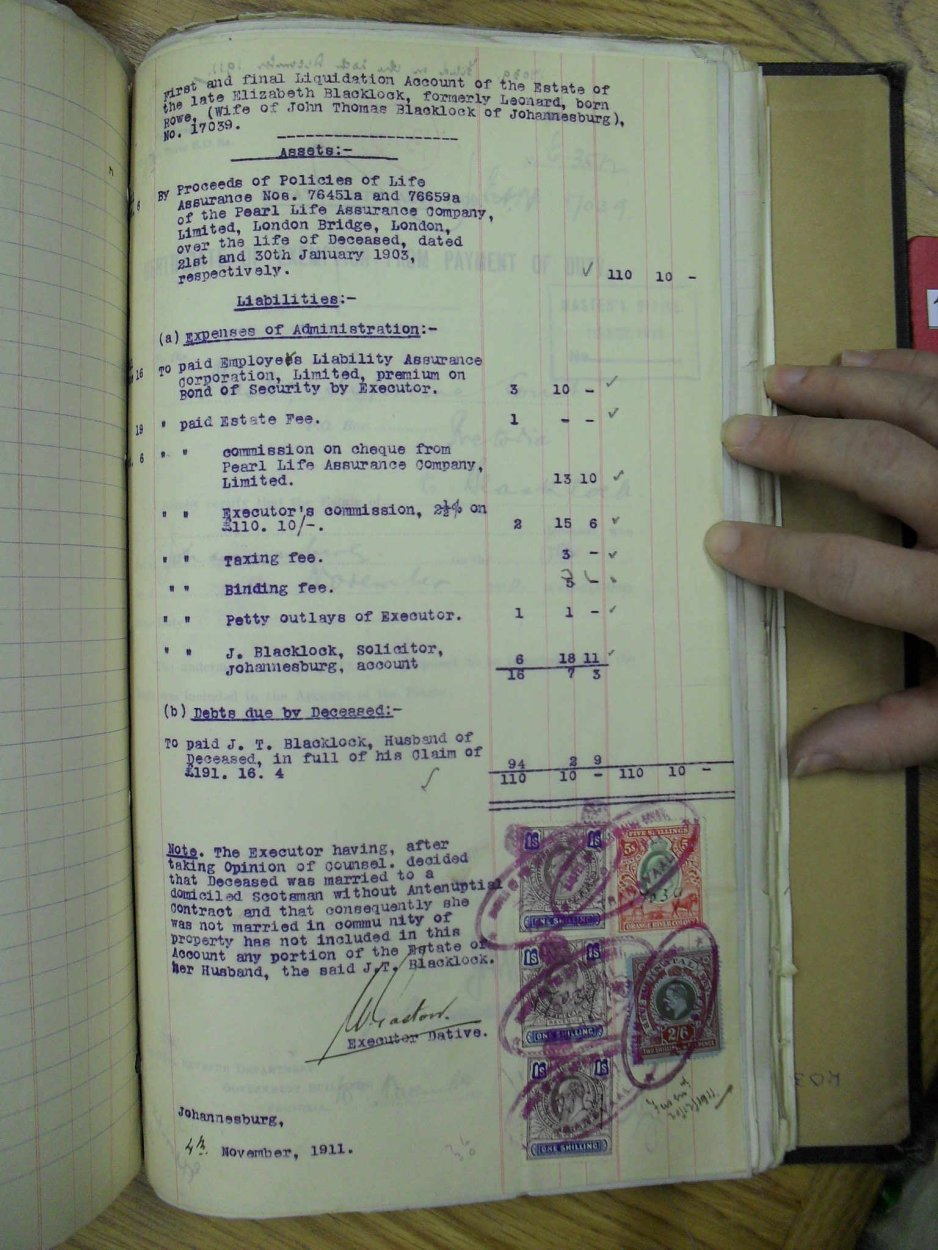 First and final Liquidation Account of the Estate of
the late Elizabeth Blacklock, formerly Leonard, born
Rowe, (Wife of John Thomas Blacklock of Johannesburg),
No. 17039.
Assets:-
By Proceeds of Policies of Life
Assurance Nos. 76451a and 76659a
of the Pearl Life Assurance Company,
Limited, London Bridge, London,
over the life of Deceased, dated
21st and 30th January 1903,
respectively. 110 10 -
Liabilities:-
(a) Expenses of Administration:-
16 To paid Employers Liability Assurance
Corporation, Limited, premium on
Bond of Security by Executor. 3 10 -
19 " paid Estate Fee. 1 - -
6 " " commission on cheque from
Pearl Life Assurance Company,
Limited. 13 10
" " Executor's commission, 2½% on
£110. 10/-. 2 15 6
" " Taxing fee. 3 -
" " Binding fee. 5 -
" " Petty outlays of Executor. 1 1 -
" " J. Blacklock, Solicitor,
Johannesburg, account 6 18 11
16 7 3
(b) Debts due by Deceased:-
To paid J. T. Blacklock, Husband of
Deceased, in full of his Claim of
£191. 16. 4 94 2 9
110 10 - 110 10 -
Note. The Executor having, after
taking Opinion of counsel. decided
that Deceased was married to a
domiciled Scotsman without Antenuptial
contract and that consequently she
was not married in commu nity of
property has not included in this
Account any portion of the Estate of
Her Husband, the said J.T. Blacklock.
Executor Dative.
Johannesburg,
4th. November, 1911.
1s 1s
ONE SHILLING
FIVE SHILLINGS
5s 5s
ORANGE RIVER COLONY
1s 1s
ONE SHILLING
2/6
1s 1s
ONE SHILLING